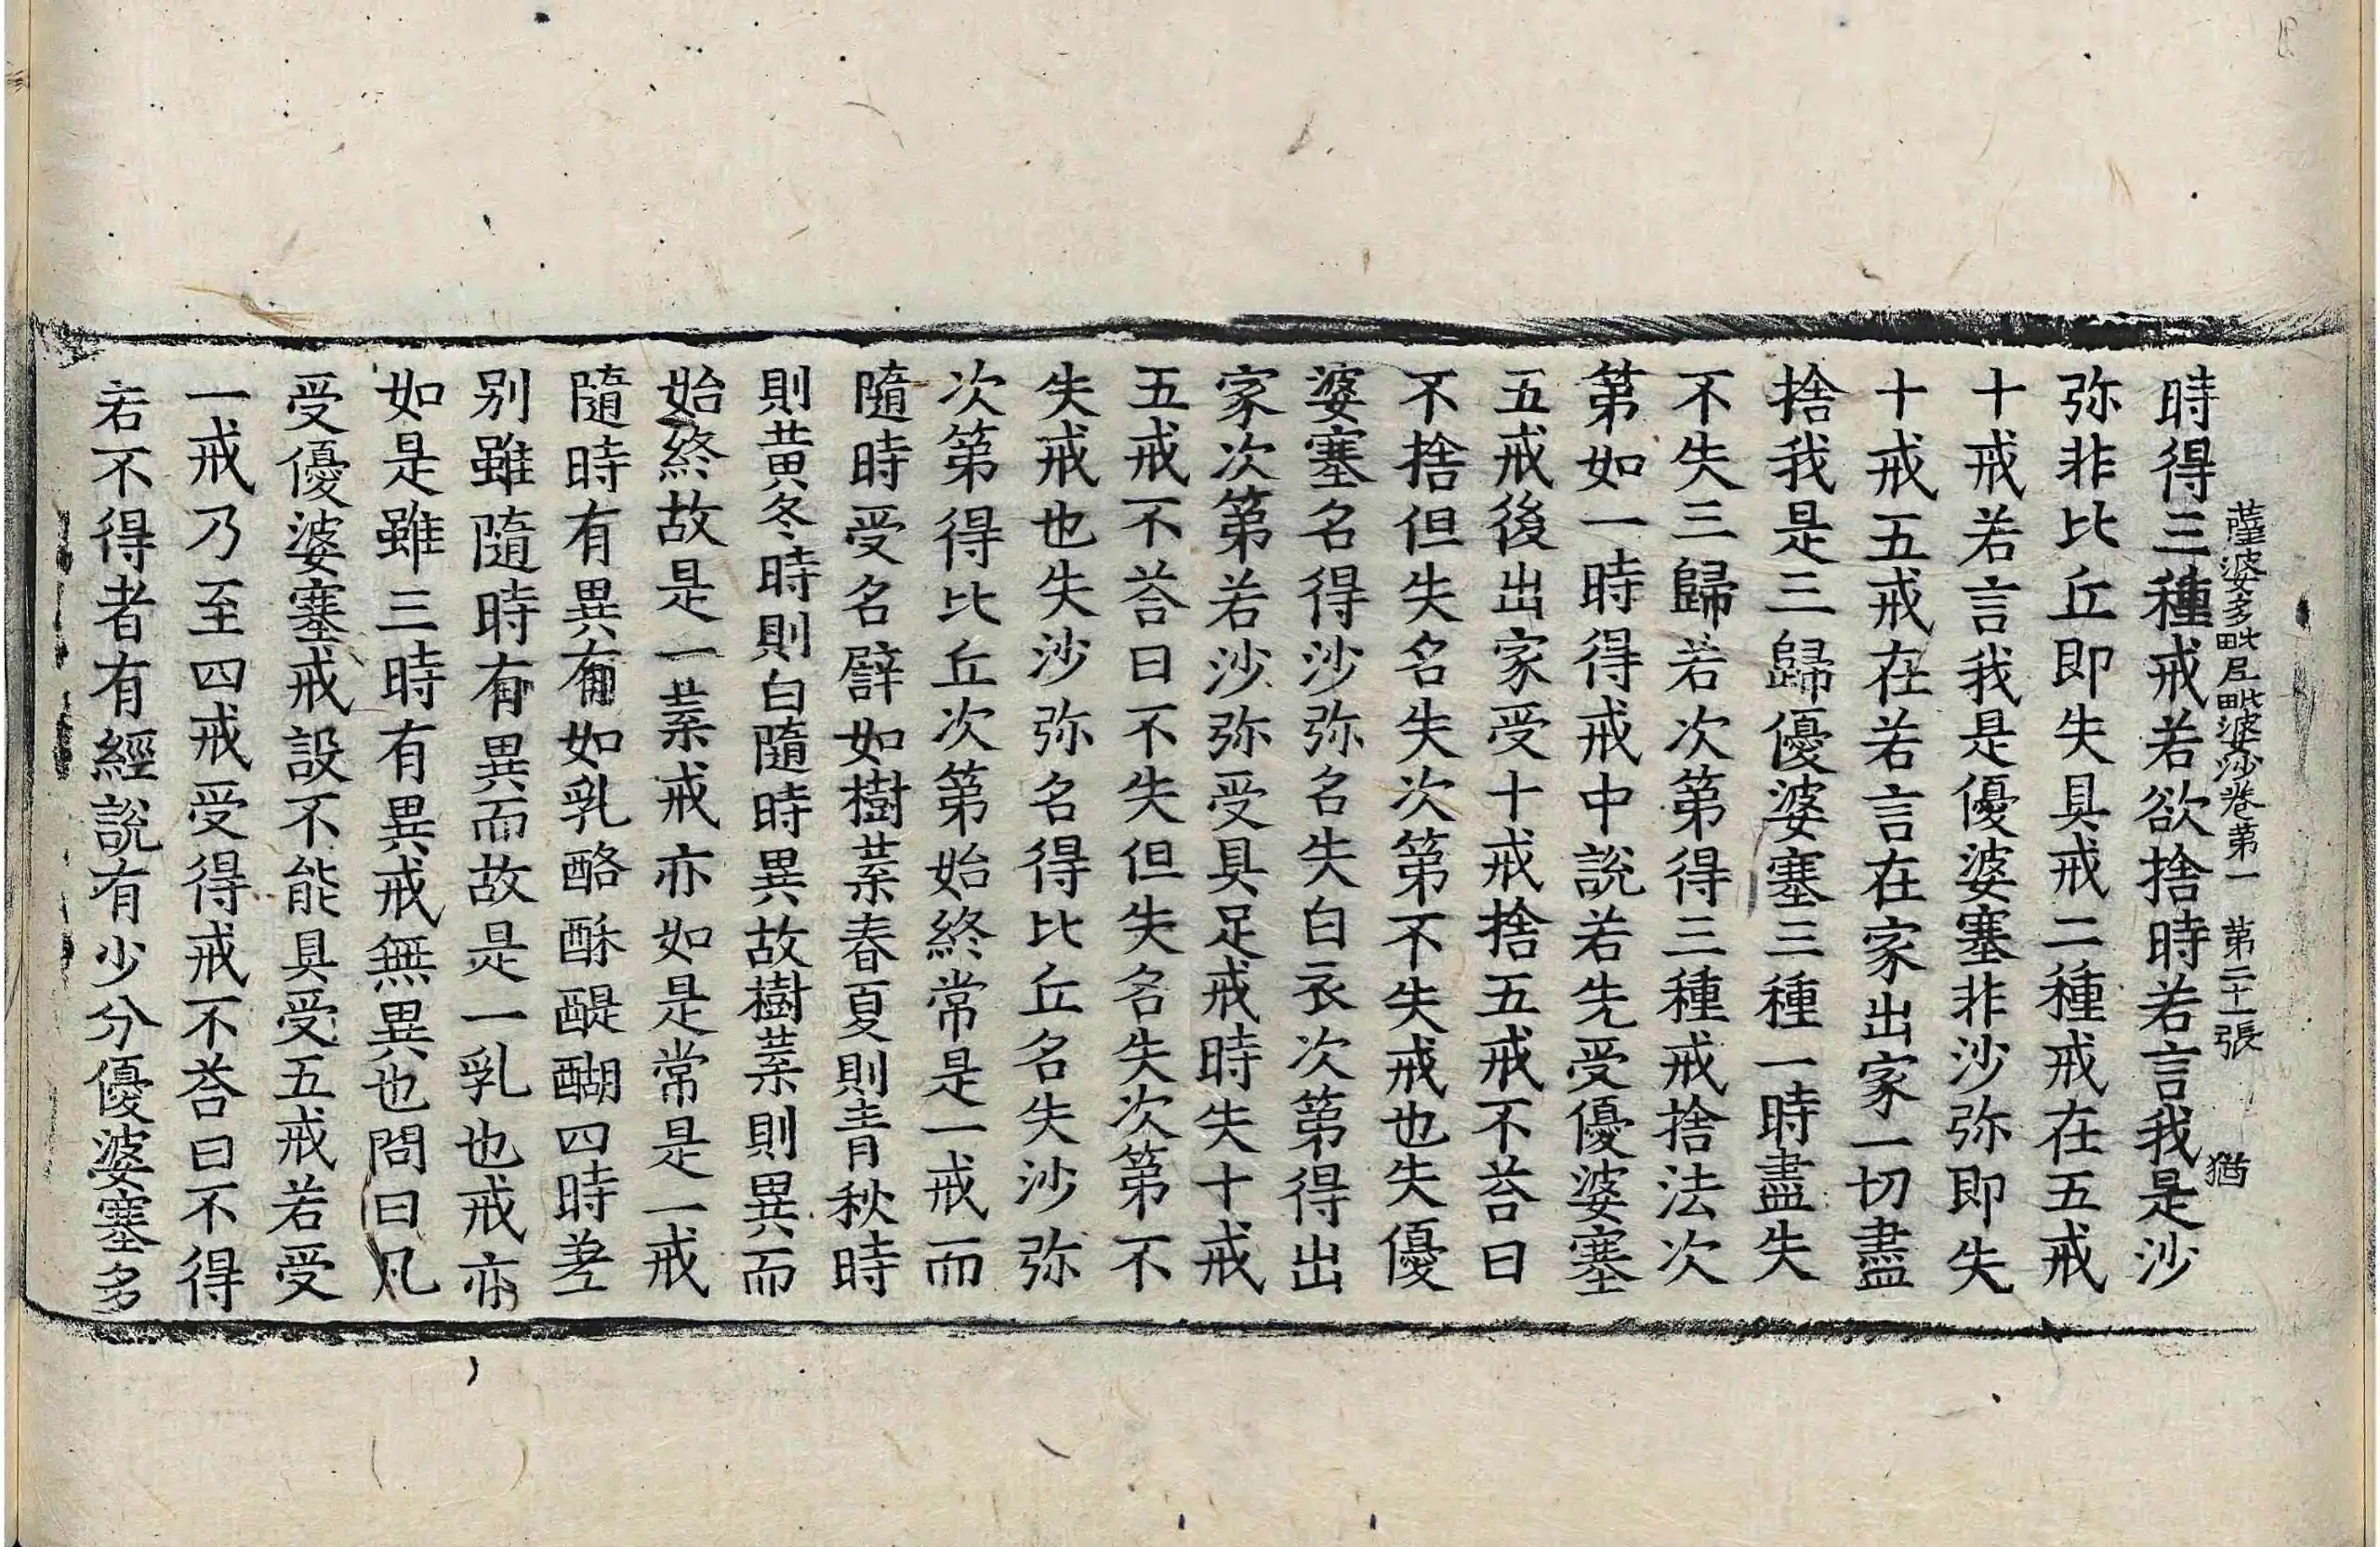 薩婆多毗尼毗婆沙卷第一 第二十一張 猶
時得三種戒若欲捨時若言我是沙
弥非比丘即失具戒二種戒在五戒
十戒若言我是優婆塞非沙弥即失
十戒五戒在若言在家出家一切盡
捨我是三歸優婆塞三種一時盡失
不失三歸若次第得三種戒捨法次
第如一時得戒中說若先受優婆塞
五戒後出家受十戒捨五戒不荅曰
不捨但失名失次第不失戒也失優
婆塞名得沙弥名失白衣次第得出
家次第若沙弥受具足戒時失十戒
五戒不荅曰不失但失名失次第不
失戒也失沙弥名得比丘名失沙弥
次第得比丘次第始終常是一戒而
隨時受名譬如樹葉春夏則青秋時
則黄冬時則白隨時異故樹葉則異而
始終故是一葉戒亦如是常是一戒
隨時有異有如乳酪酥醍醐四時差
别雖隨時有異而故是一乳也戒亦
如是雖三時有異戒無異也問曰凡
受優婆塞戒設不能具受五戒若受
一戒乃至四戒受得戒不荅曰不得
若不得者有經說有少分優婆塞多